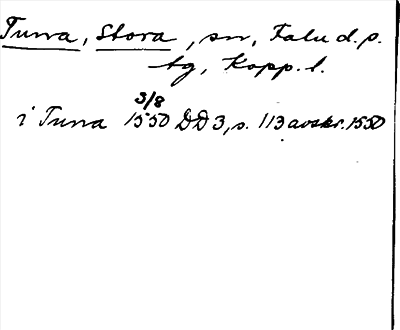 Tuna, Stora, sn, Falu d.s.
tg, Kopp. l.
3/8
i Tuna 1550 DD3, s. 113 avskr. 1550